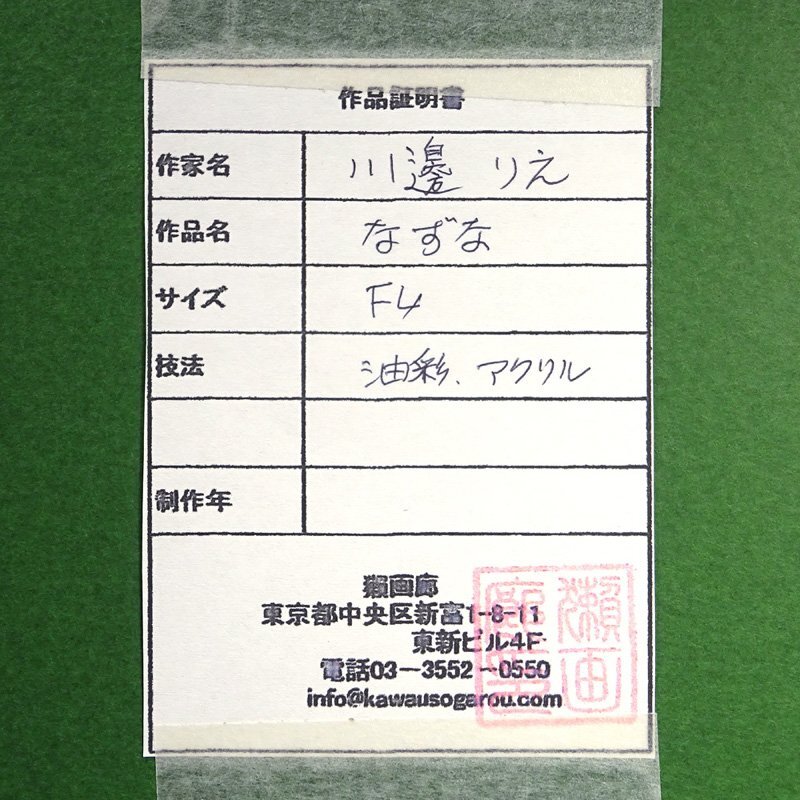 作品証明書
作家名 川邊 りえ
作品名 なずな
サイズ F4
技法 油彩、アクリル
制作年
獺画廊
東京都中央区新富1-8-11
東新ビル4F
電話03-3552-0550
info@kawausogarou.com
獺画
廊印